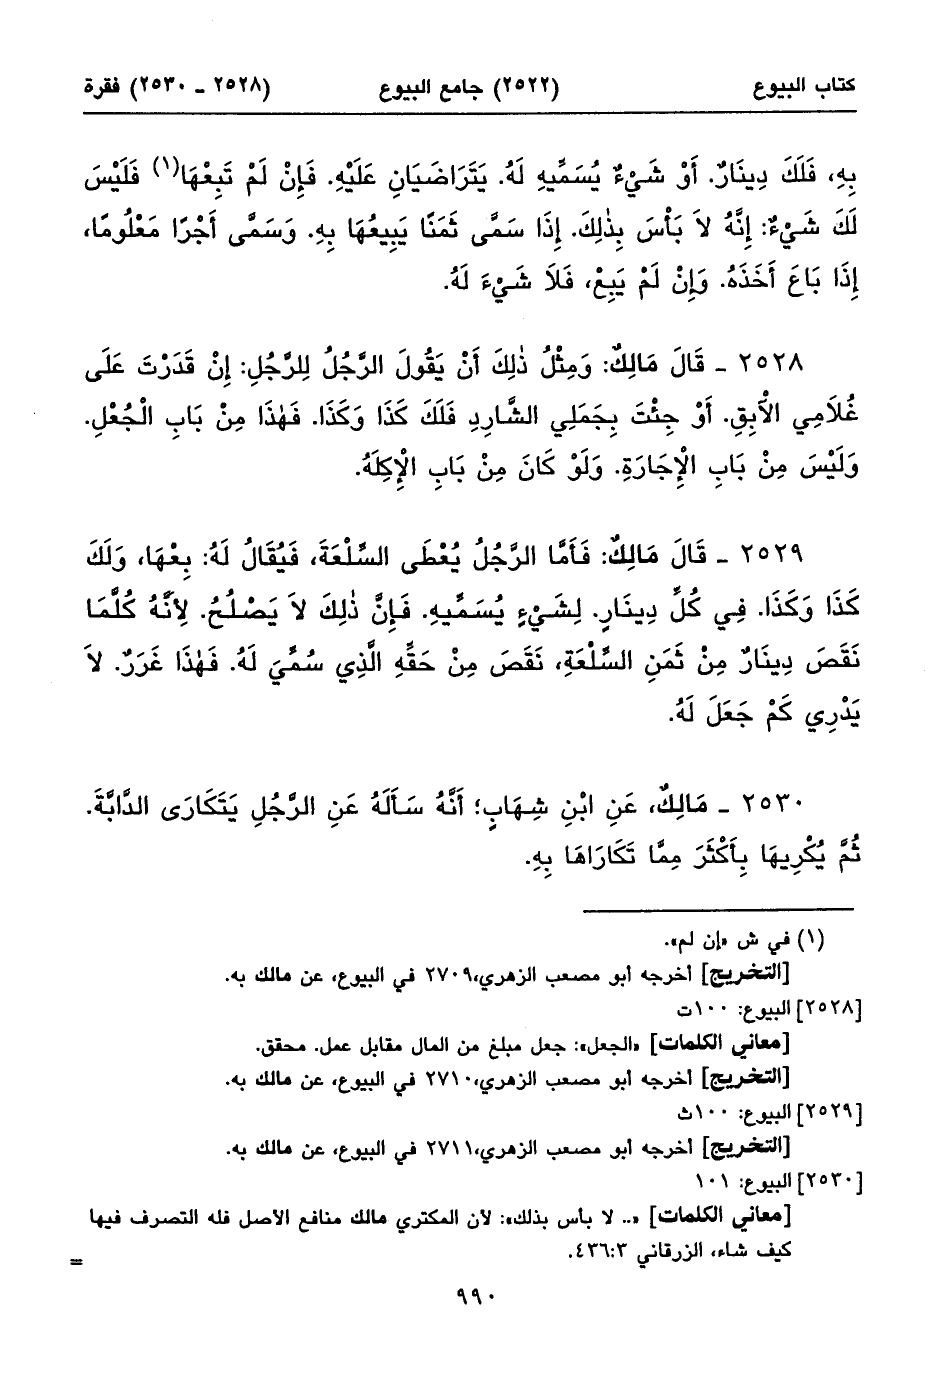 كتاب البيوع (٢٥٢٢) جامع البيوع (٢٥٢٨ ـ ٢٥٣٠) فقرة
بِهِ، فَلَكَ دِينَارٌ. أَوْ شَيْءٌ يُسَمِّيهِ لَهُ. يَتَرَاضَيَانِ عَلَيْهِ. فَإِنْ لَمْ تَبِعْهَا(١) فَلَيْسَ
لَكَ شَيْءٌ: إِنَّهُ لاَ بَأْسَ بِذٰلِكَ. إِذَا سَمَّى ثَمَنًا يَبِيعُهَا بِهِ. وَسَمَّى أَجْرًا مَعْلُومًا،
إِذَا بَاعَ أَخَذَهُ. وَإِنْ لَمْ يَبِعْ، فَلاَ شَيْءَ لَهُ.
٢٥٢٨ ـ قَالَ مَالِكٌ: وَمِثْلُ ذٰلِكَ أَنْ يَقُولَ الرَّجُلُ لِلرَّجُلِ: إِنْ قَدَرْتَ عَلَى
غُلاَمِي الْآبِقِ. أَوْ جِئْتَ بِجَمَلِي الشَّارِدِ فَلَكَ كَذَا وَكَذَا. فَهٰذَا مِنْ بَابِ الْجُعْلِ.
وَلَيْسَ مِنْ بَابِ الْإِجَارَةِ. وَلَوْ كَانَ مِنْ بَابِ الْإِكلَهُ.
٢٥٢٩ ـ قَالَ مَالِكٌ: فَأَمَّا الرَّجُلُ يُعْطَى السِّلْعَةَ، فَيُقَالُ لَهُ: بِعْهَا، وَلَكَ
كَذَا وَكَذَا. فِي كُلِّ دِينَارٍ. لِشَيْءٍ يُسَمِّيهِ. فَإِنَّ ذٰلِكَ لاَ يَصْلُحُ. لِأَنَّهُ كُلَّمَا
نَقَصَ دِينَارٌ مِنْ ثَمَنِ السِّلْعَةِ، نَقَصَ مِنْ حَقِّهِ الَّذِي سُمِّيَ لَهُ. فَهٰذَا غَرَرٌ. لاَ
يَدْرِي كَمْ جَعَلَ لَهُ.
٢٥٣٠ ـ مَالِكٌ، عَنِ ابْنِ شِهَابٍ؛ أَنَّهُ سَأَلَهُ عَنِ الرَّجُلِ يَتَكَارَى الدَّابَّةَ.
ثُمَّ يُكْرِيهَا بِأَكْثَرَ مِمَّا تَكَارَاهَا بِهِ.
(١) في ش «إن لم».
[التخريج] أخرجه أبو مصعب الزهري،٢٧٠٩ في البيوع، عن مالك به.
[٢٥٢٨] البيوع: ١٠٠ت
[معاني الكلمات] «الجعل»: جعل مبلغ من المال مقابل عمل. محقق.
[التخريج] أخرجه أبو مصعب الزهري،٢٧١٠ في البيوع، عن مالك به.
[٢٥٢٩] البيوع: ١٠٠ث
[التخريج] أخرجه أبو مصعب الزهري،٢٧١١ في البيوع، عن مالك به.
[٢٥٣٠] البيوع: ١٠١
[معاني الكلمات] «.. لا بأس بذلك»: لأن المكتري مالك منافع الأصل فله التصرف فيها
كيف شاء، الزرقاني ٤٣٦:٣. =
٩٩٠